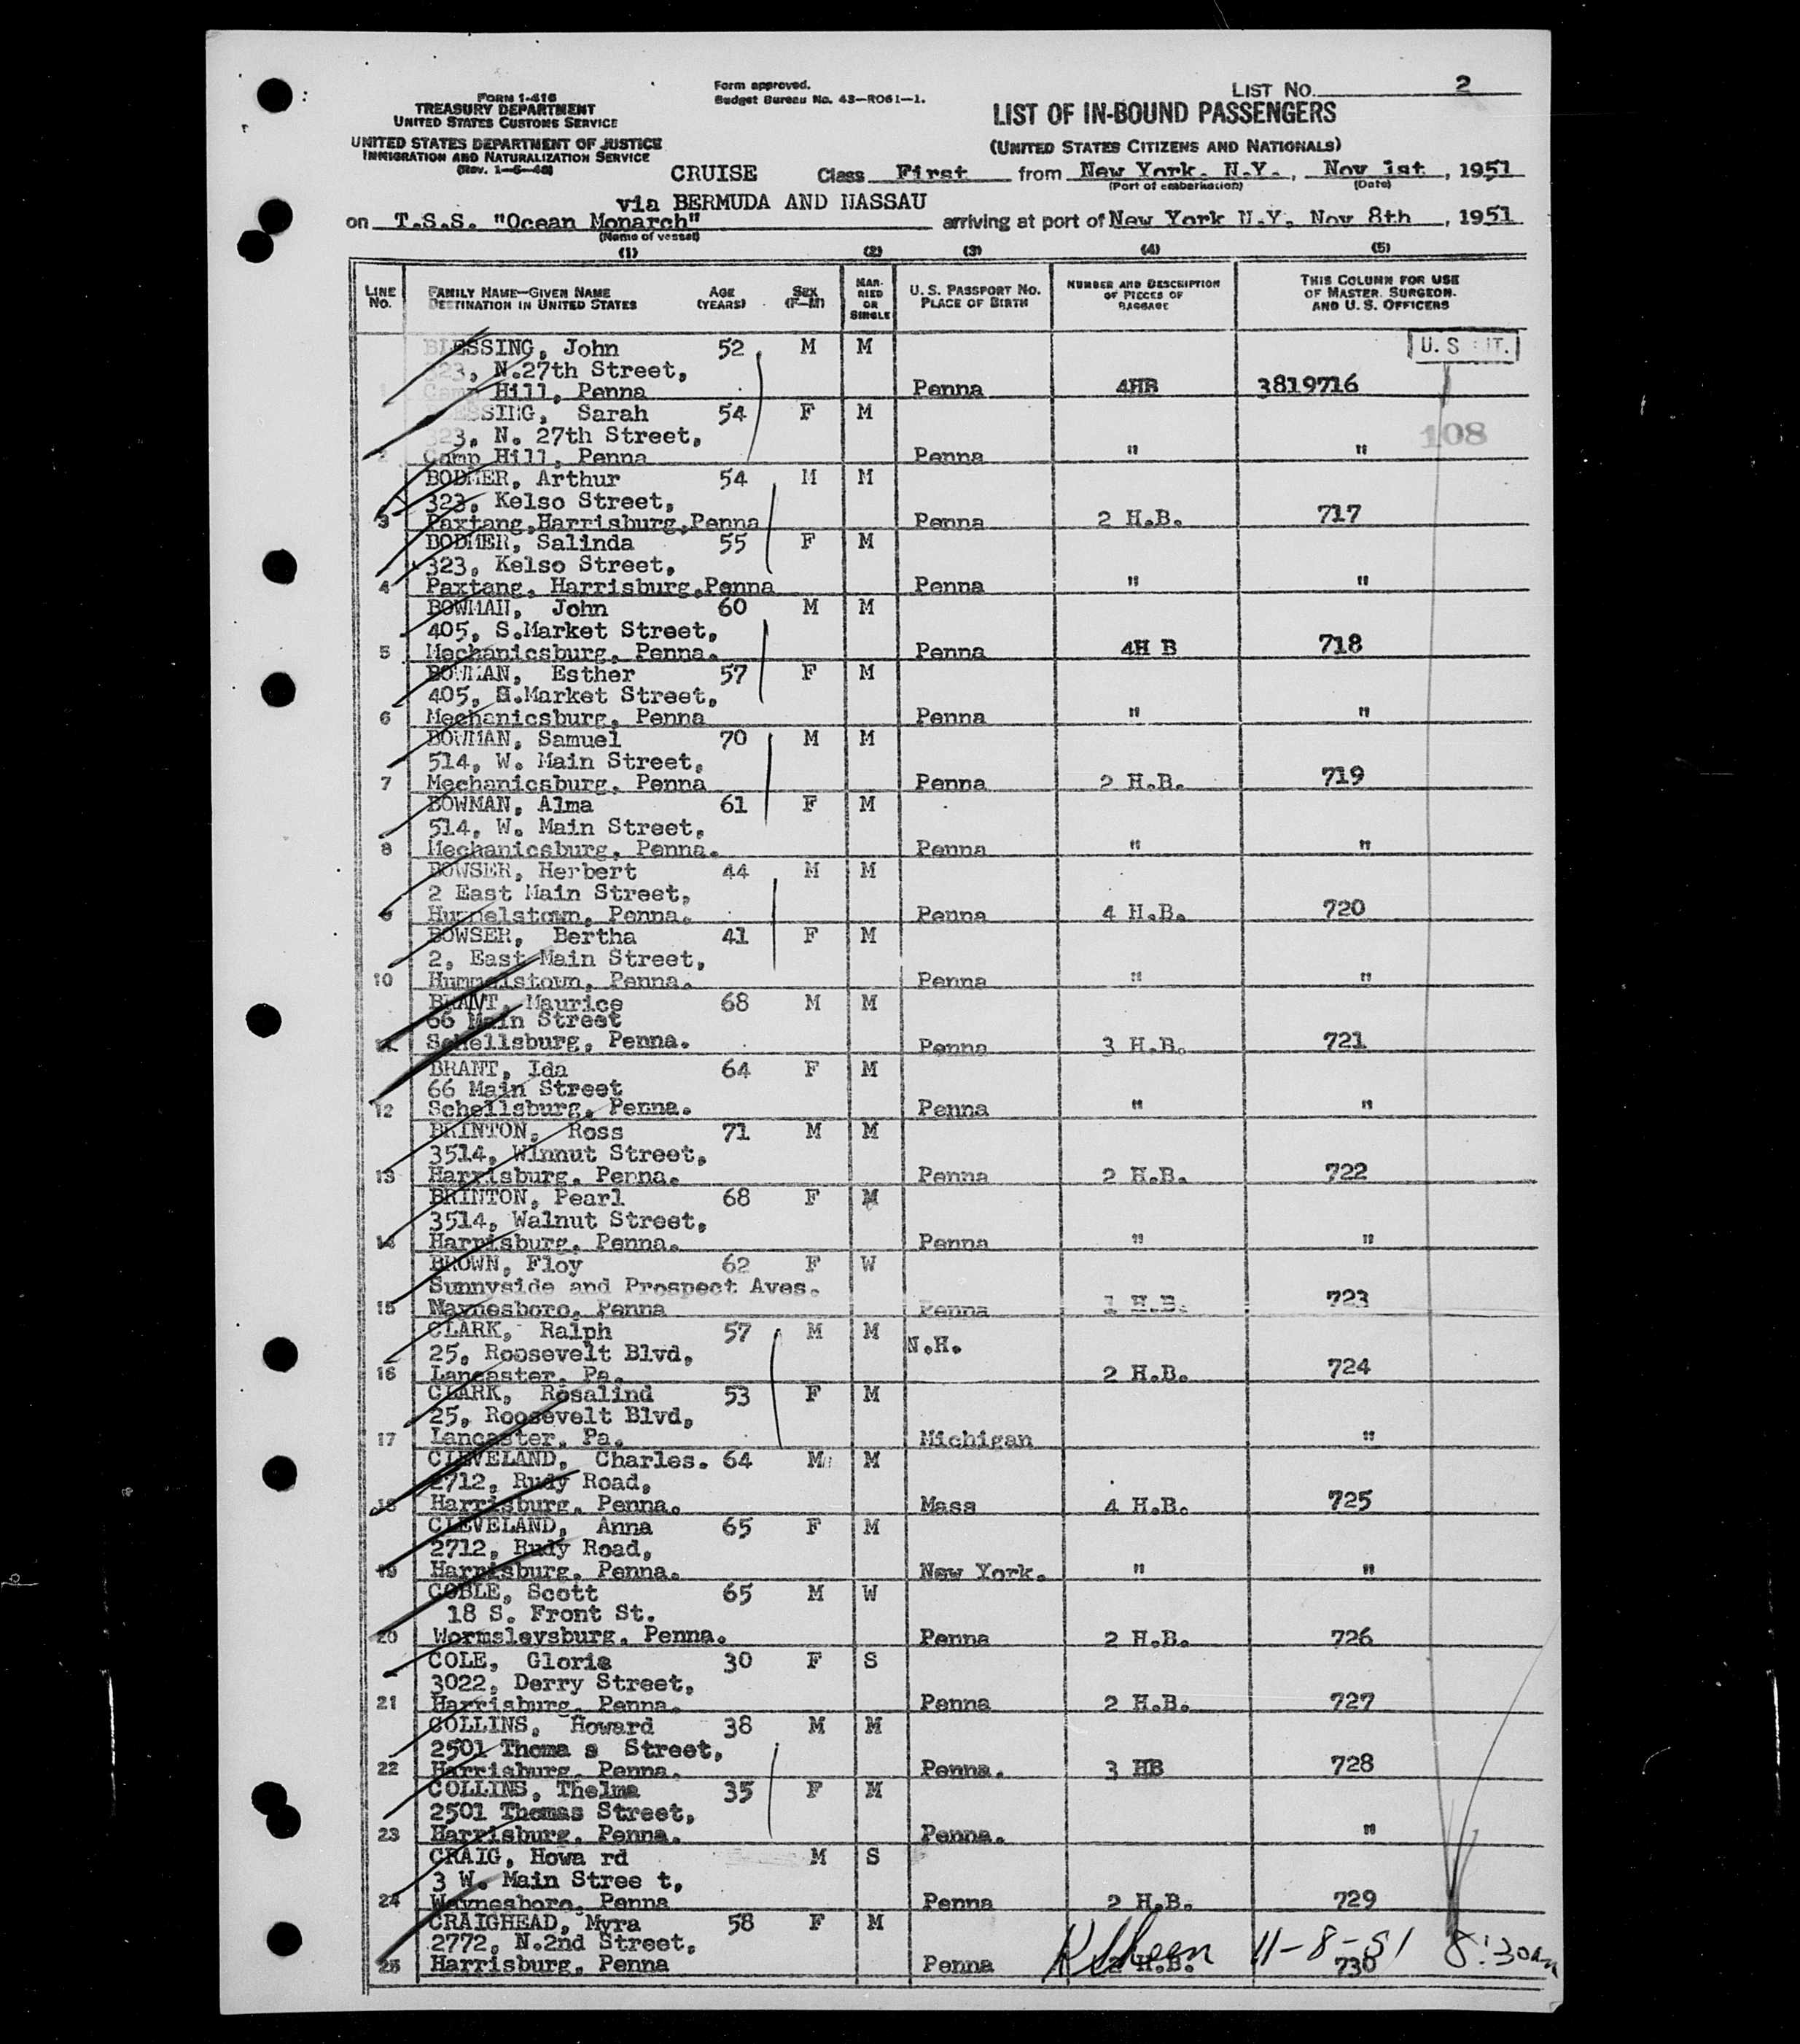 LIST No. 2
FORM I-416
TREASURY DEPARTMENT
UNITED STATES CUSTOMS SERVICE
UNITED STATES DEPARTMENT OF JUSTICE
IMMIGRATION AND NATURALIZATION SERVICE
Form approved.
Budget Bureau No. 43-R061-1.
LIST OF IN-BOUND PASSENGERS
(UNITED STATES CITIZENS AND NATIONALS)
CRUISE Class First from New York. N.Y., Nov 1st, 1951
(Port of embarkation) (Date)
via BERMUDA AND NASSAU
on T.S.S. "Ocean Monarch" arriving at port of New York N.Y. Nov 8th, 1951
(Name of vessel)
(1) (2) (3) (4) (5)
LINE No. FAMILY NAME—GIVEN NAME DESTINATION IN UNITED STATES AGE (YEARS) SEX (F-M) MARRIED OR SINGLE U. S. PASSPORT No. PLACE OF BIRTH NUMBER AND DESCRIPTION OF PIECES OF BAGGAGE THIS COLUMN FOR USE OF MASTER, SURGEON, AND U. S. OFFICERS
BLESSING, John 52 M M U. S. CIT.
323, N.27th Street,
1 Camp Hill, Penna Penna 4HB 3819716
BLESSING, Sarah 54 F M
323, N. 27th Street, 108
2 Camp Hill, Penna Penna " "
BODMER, Arthur 54 M M
323, Kelso Street,
3 Paxtang,Harrisburg,Penna Penna 2 H.B. 717
BODMER, Salinda 55 F M
323, Kelso Street,
4 Paxtang, Harrisburg,Penna Penna " "
BOWMAN, John 60 M M
405, S.Market Street,
5 Mechanicsburg, Penna. Penna 4H B 718
BOWMAN, Esther 57 F M
405, S.Market Street,
6 Mechanicsburg, Penna Penna " "
BOWMAN, Samuel 70 M M
514, W. Main Street,
7 Mechanicsburg, Penna Penna 2 H.B. 719
BOWMAN, Alma 61 F M
514, W. Main Street,
8 Mechanicsburg, Penna. Penna " "
BOWSER, Herbert 44 M M
2 East Main Street,
9 Hummelstown, Penna. Penna 4 H.B. 720
BOWSER, Bertha 41 F M
2, East Main Street,
10 Hummelstown, Penna. Penna " "
BRANT, Maurice 68 M M
66 Main Street
11 Schellsburg, Penna. Penna 3 H.B. 721
BRANT, Ida 64 F M
66 Main Street
12 Schellsburg, Penna. Penna " "
BRINTON, Ross 71 M M
3514, Winnut Street,
13 Harrisburg, Penna. Penna 2 H.B. 722
BRINTON, Pearl 68 F M
3514, Walnut Street,
14 Harrisburg, Penna. Penna " "
BROWN, Floy 62 F W
Sunnyside and Prospect Aves.
15 Waynesboro, Penna Penna 1 H.B. 723
CLARK, Ralph 57 M M N.H.
25, Roosevelt Blvd,
16 Lancaster, Pa. 2 H.B. 724
CLARK, Rosalind 53 F M
25, Roosevelt Blvd,
17 Lancaster, Pa. Michigan "
CLEVELAND, Charles. 64 M M
2712, Rudy Road,
18 Harrisburg, Penna. Mass 4 H.B. 725
CLEVELAND, Anna 65 F M
2712, Rudy Road,
19 Harrisburg, Penna. New York. " "
COBLE, Scott 65 M W
18 S. Front St.
20 Wormsleysburg, Penna. Penna 2 H.B. 726
COLE, Gloria 30 F S
3022, Derry Street,
21 Harrisburg, Penna. Penna 2 H.B. 727
COLLINS, Howard 38 M M
2501 Thoma s Street,
22 Harrisburg, Penna. Penna. 3 HB 728
COLLINS, Thelma 35 F M
2501 Thomas Street,
23 Harrisburg, Penna. Penna. "
CRAIG, Howa rd M S
3 W. Main Stree t,
24 Waynesboro, Penna Penna 2 H.B. 729
CRAIGHEAD, Myra 58 F M
2772, N.2nd Street, 11-8-51 8:30am
25 Harrisburg, Penna Penna H.B. 730